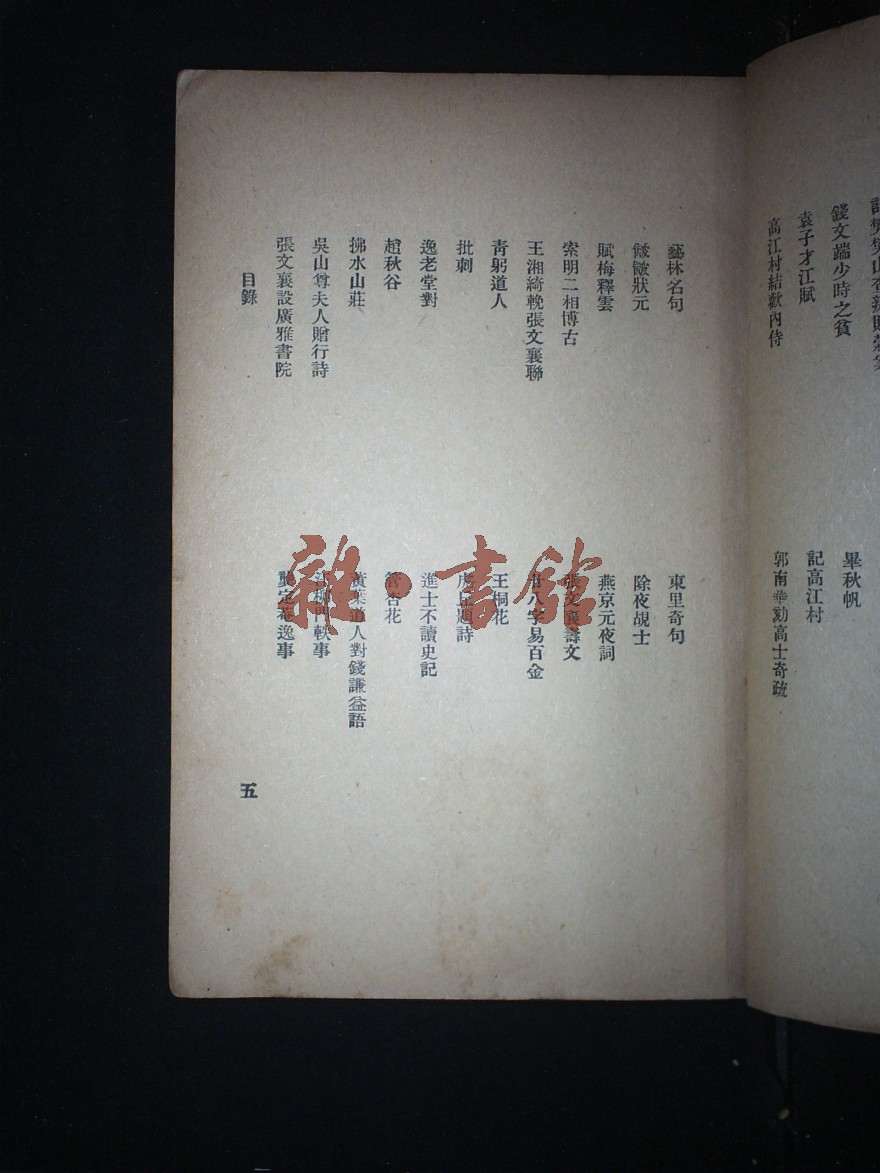 錢文端少時之貧
袁子才江賦
高江村結歡內侍
畢秋帆
記高江村
郭南華劾高士奇疏
藝林名句
皴皴狀元
賦梅釋雲
索明二相博古
王湘綺輓張文襄聯
青躬道人
批刺
逸老堂對
趙秋谷
拂水山莊
吳山尊夫人贈行詩
張文襄設廣雅書院
東里奇句
除夜覘士
燕京元夜詞
張文襄壽文
廿八字易百金
王桐花
題詩
進士不讀史記
管杏花
黃葉道人對錢謙益語
柳門軼事
龔定菴逸事
目錄
五
雜·書館